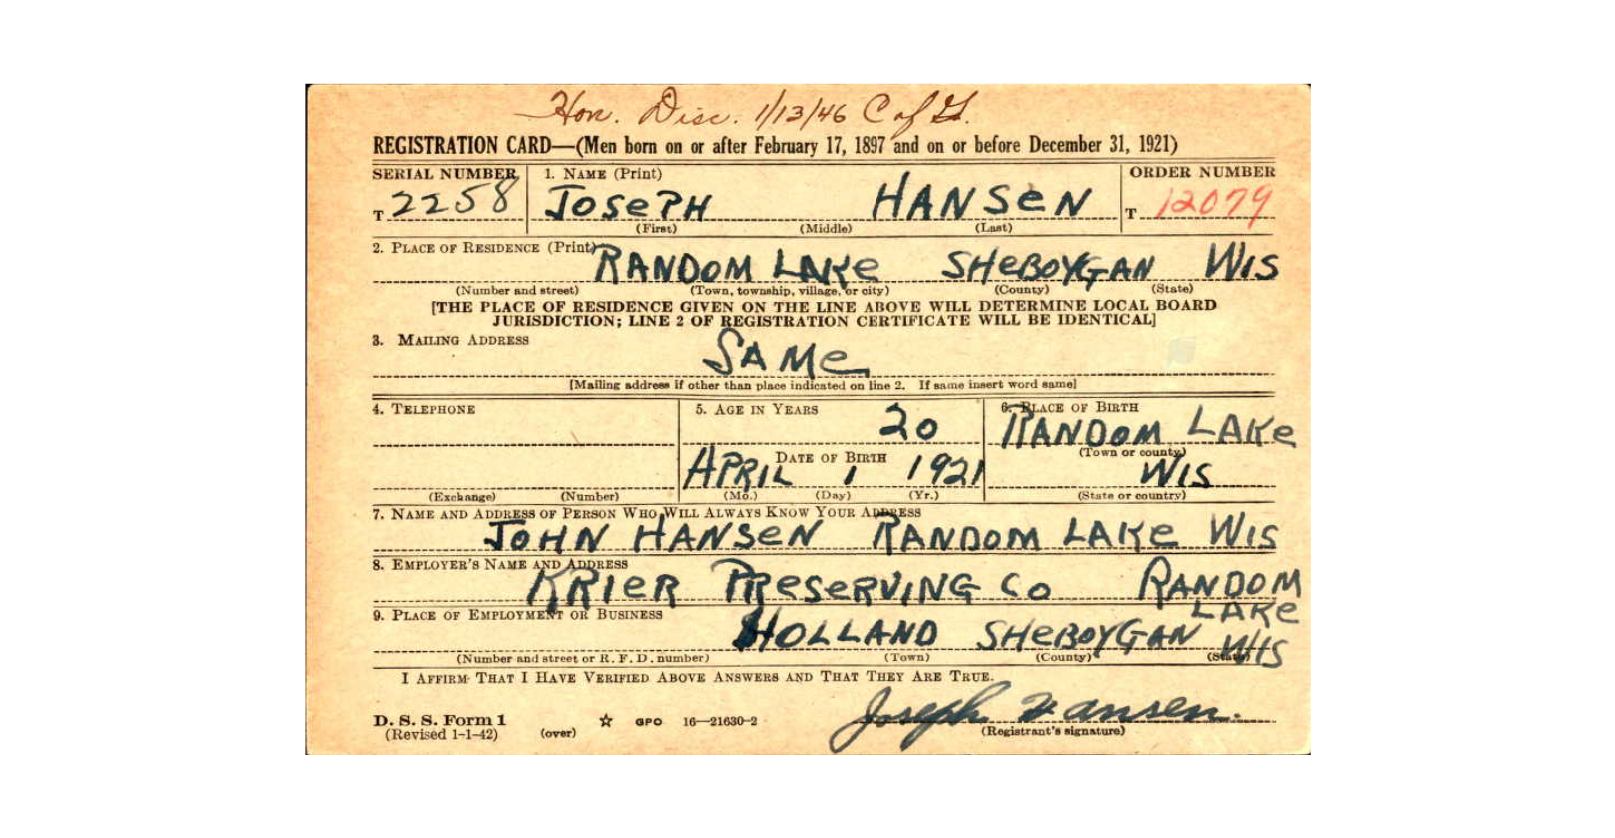 Hon. Disc. 1/13/46 C of G.
REGISTRATION CARD—(Men born on or after February 17, 1897 and on or before December 31, 1921)
SERIAL NUMBER 1. NAME (Print) ORDER NUMBER
T 2258 JOSEPH HANSEN T 12079
(First) (Middle) (Last)
2. PLACE OF RESIDENCE (Print)
RANDOM LAKE SHEBOYGAN WIS
(Number and street) (Town, township, village, or city) (County) (State)
[THE PLACE OF RESIDENCE GIVEN ON THE LINE ABOVE WILL DETERMINE LOCAL BOARD
JURISDICTION; LINE 2 OF REGISTRATION CERTIFICATE WILL BE IDENTICAL]
3. MAILING ADDRESS
SAME
[Mailing address if other than place indicated on line 2. If same insert word same]
4. TELEPHONE 5. AGE IN YEARS 6. PLACE OF BIRTH
20 RANDOM LAKE
DATE OF BIRTH (Town or county)
APRIL 1 1921 WIS
(Exchange) (Number) (Mo.) (Day) (Yr.) (State or country)
7. NAME AND ADDRESS OF PERSON WHO WILL ALWAYS KNOW YOUR ADDRESS
JOHN HANSEN RANDOM LAKE WIS
8. EMPLOYER'S NAME AND ADDRESS
KRIER PRESERVING CO RANDOM
LAKE
9. PLACE OF EMPLOYMENT OR BUSINESS
HOLLAND SHEBOYGAN WIS
(Number and street or R. F. D. number) (Town) (County) (State)
I AFFIRM THAT I HAVE VERIFIED ABOVE ANSWERS AND THAT THEY ARE TRUE.
Joseph Hansen.
D. S. S. Form 1 ☆ GPO 16—21630-2
(Revised 1-1-42) (over) (Registrant's signature)